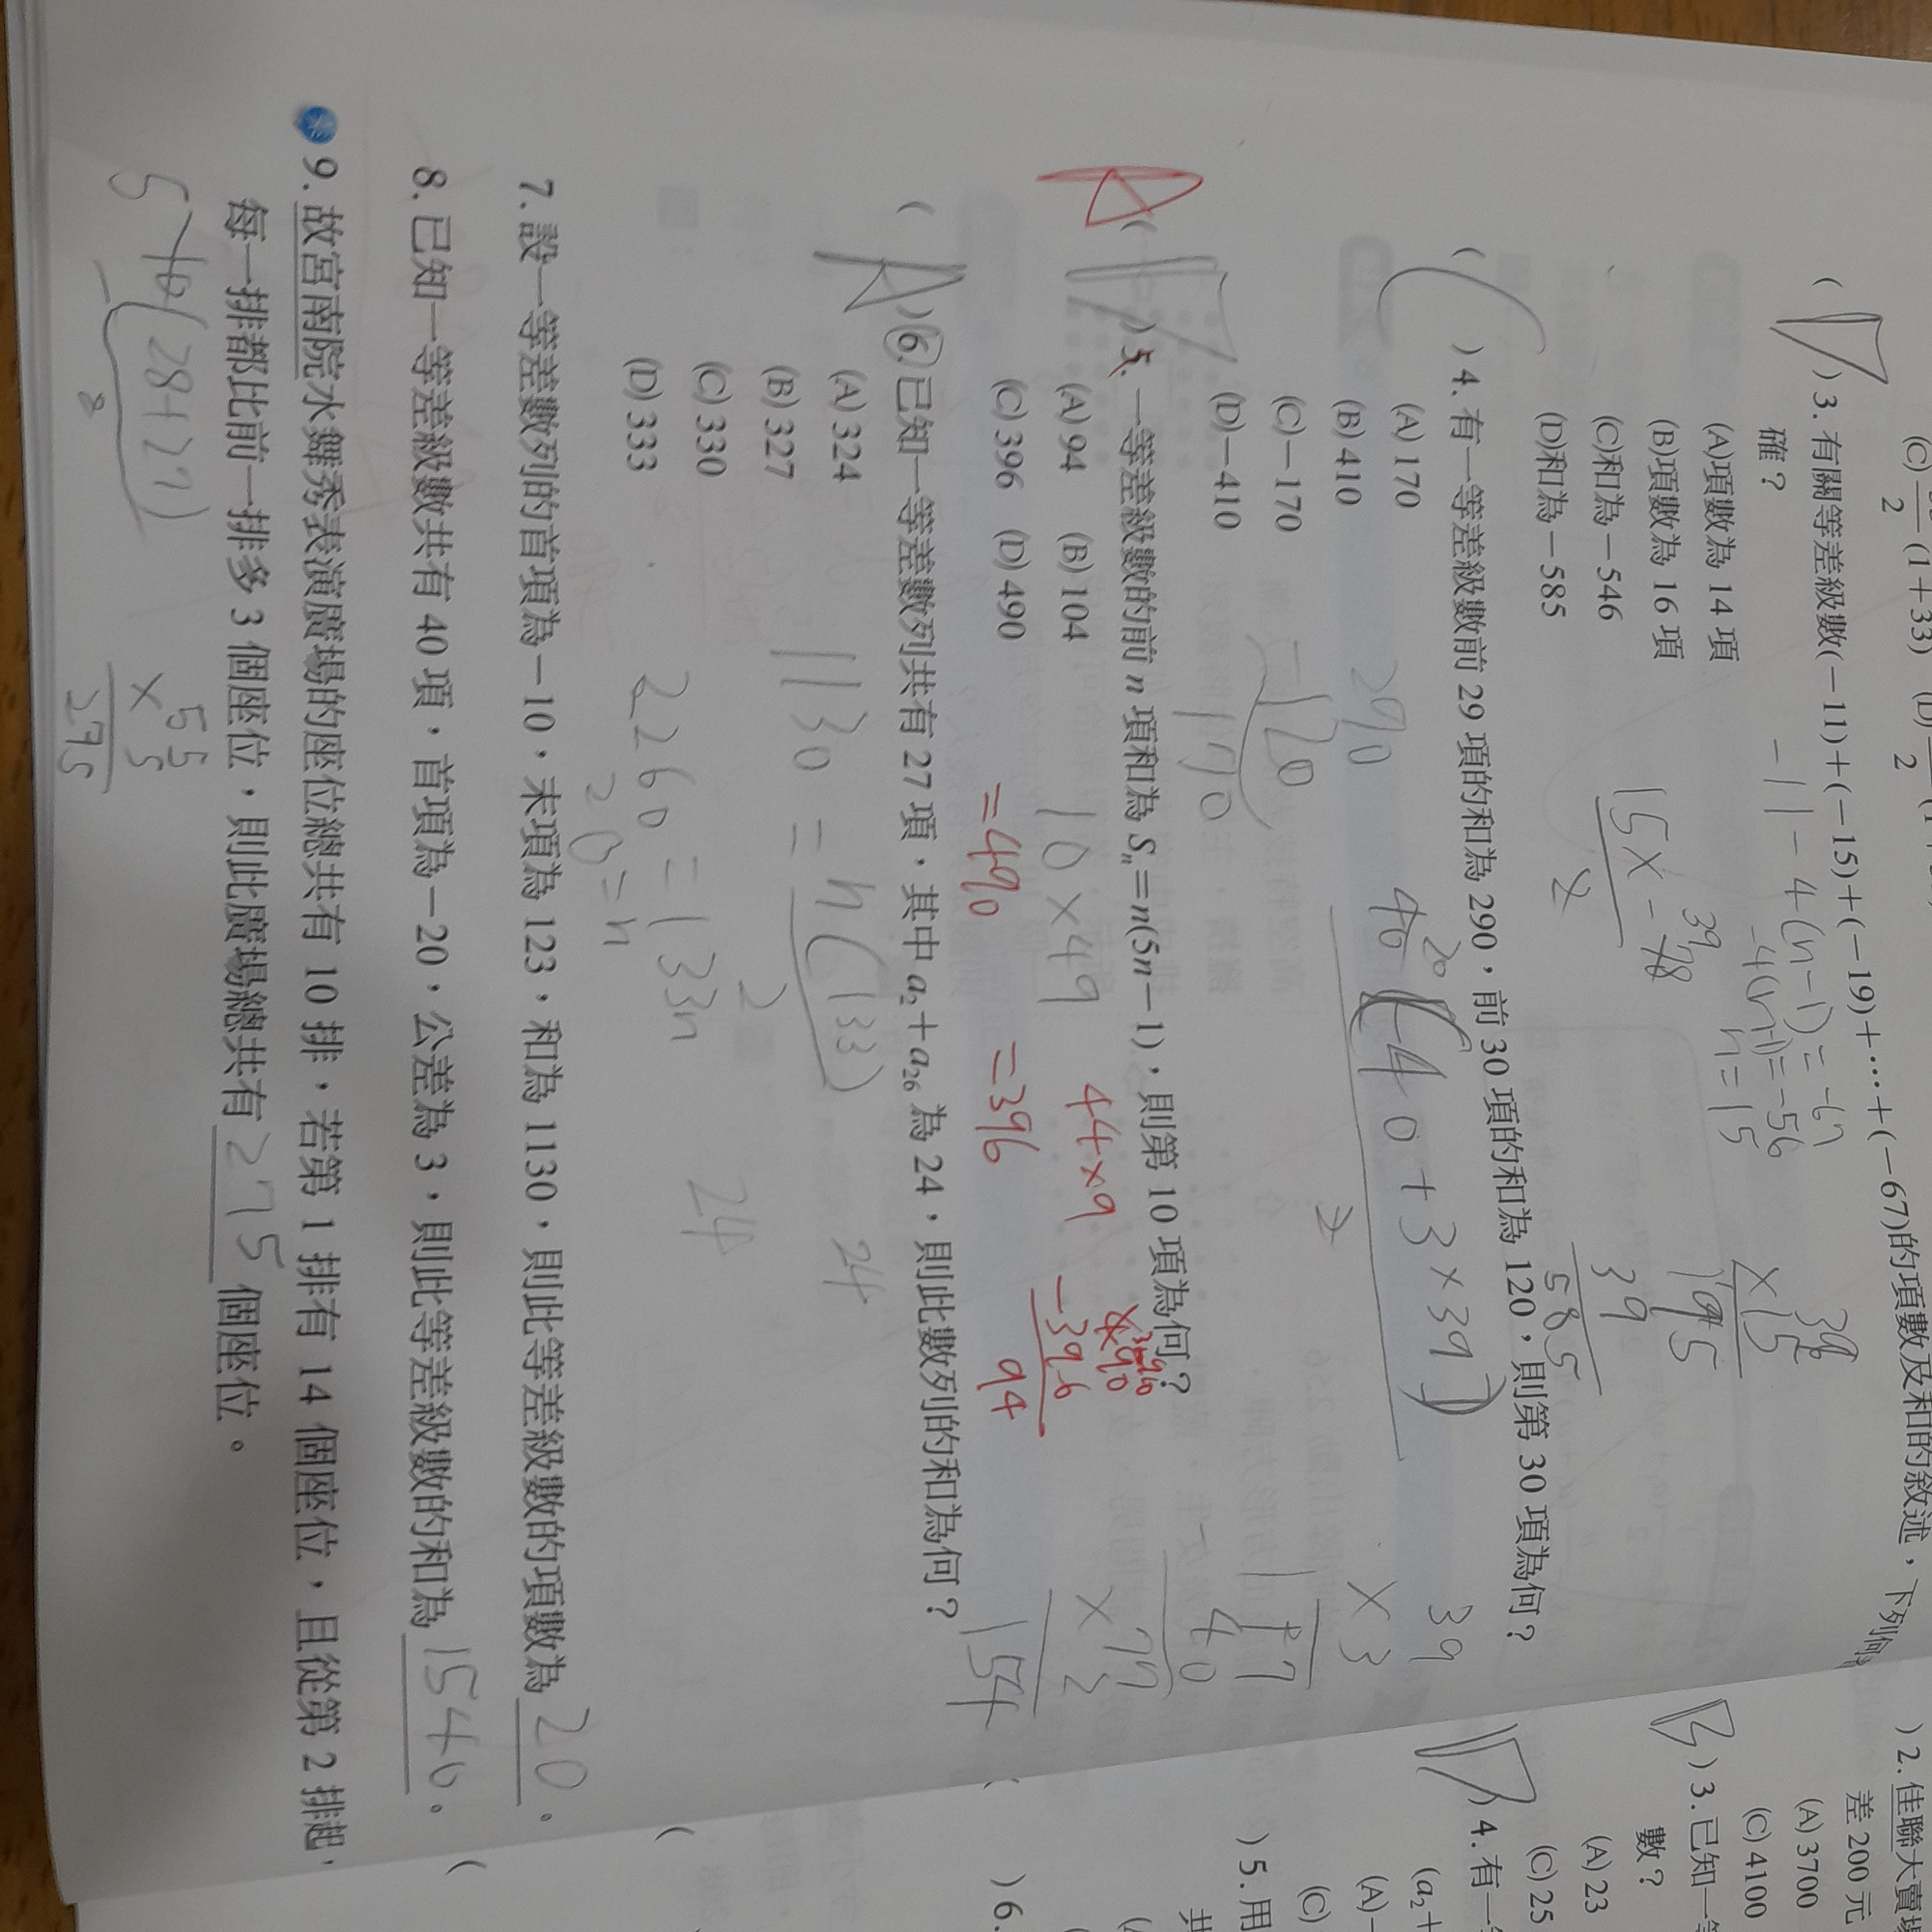 (C) (1+33) (D)
2 2
( D )3. 有關等差級數(-11)+(-15)+(-19)+…+(-67)的項數及和的敘述，下列何
確？
(A)項數為 14 項
(B)項數為 16 項
(C)和為-546
(D)和為-585
-11-4(n-1)=-67
-4(n-1)=-56
n=15
39
15×-78
2
39
×15
195
39
585
( C )4. 有一等差級數前 29 項的和為 290，前 30 項的和為 120，則第 30 項為何？
(A) 170
(B) 410
(C)-170
(D)-410
290
-120
170
20
40(-40+3×39)
2
39
×3
117
40
77
×2
154
A
( D )5. 一等差級數的前 n 項和為 Sn=n(5n-1)，則第 10 項為何？
(A) 94 (B) 104
(C) 396 (D) 490
10×49
=490
44×9
=396
490
-396
94
( A )6. 已知一等差數列共有 27 項，其中 a2+a26 為 24，則此數列的和為何？
(A) 324
(B) 327
(C) 330
(D) 333
1130=n(133)
2
2260=133n
20=n
24
24
7. 設一等差數列的首項為-10，末項為 123，和為 1130，則此等差級數的項數為 20 。
8. 已知一等差級數共有 40 項，首項為-20，公差為 3，則此等差級數的和為 1540 。
9. 故宮南院水舞秀表演廣場的座位總共有 10 排，若第 1 排有 14 個座位，且從第 2 排起，
每一排都比前一排多 3 個座位，則此廣場總共有 275 個座位。
5
10(28+27)
2
55
×5
275
)2. 佳聯大賣場
差 200 元
(A) 3700
(C) 4100
( B )3. 已知一等
數？
(A) 23
(C) 25
( D )4. 有一
(a2+
(A)-
(C)
)5. 用
共
(
)6.